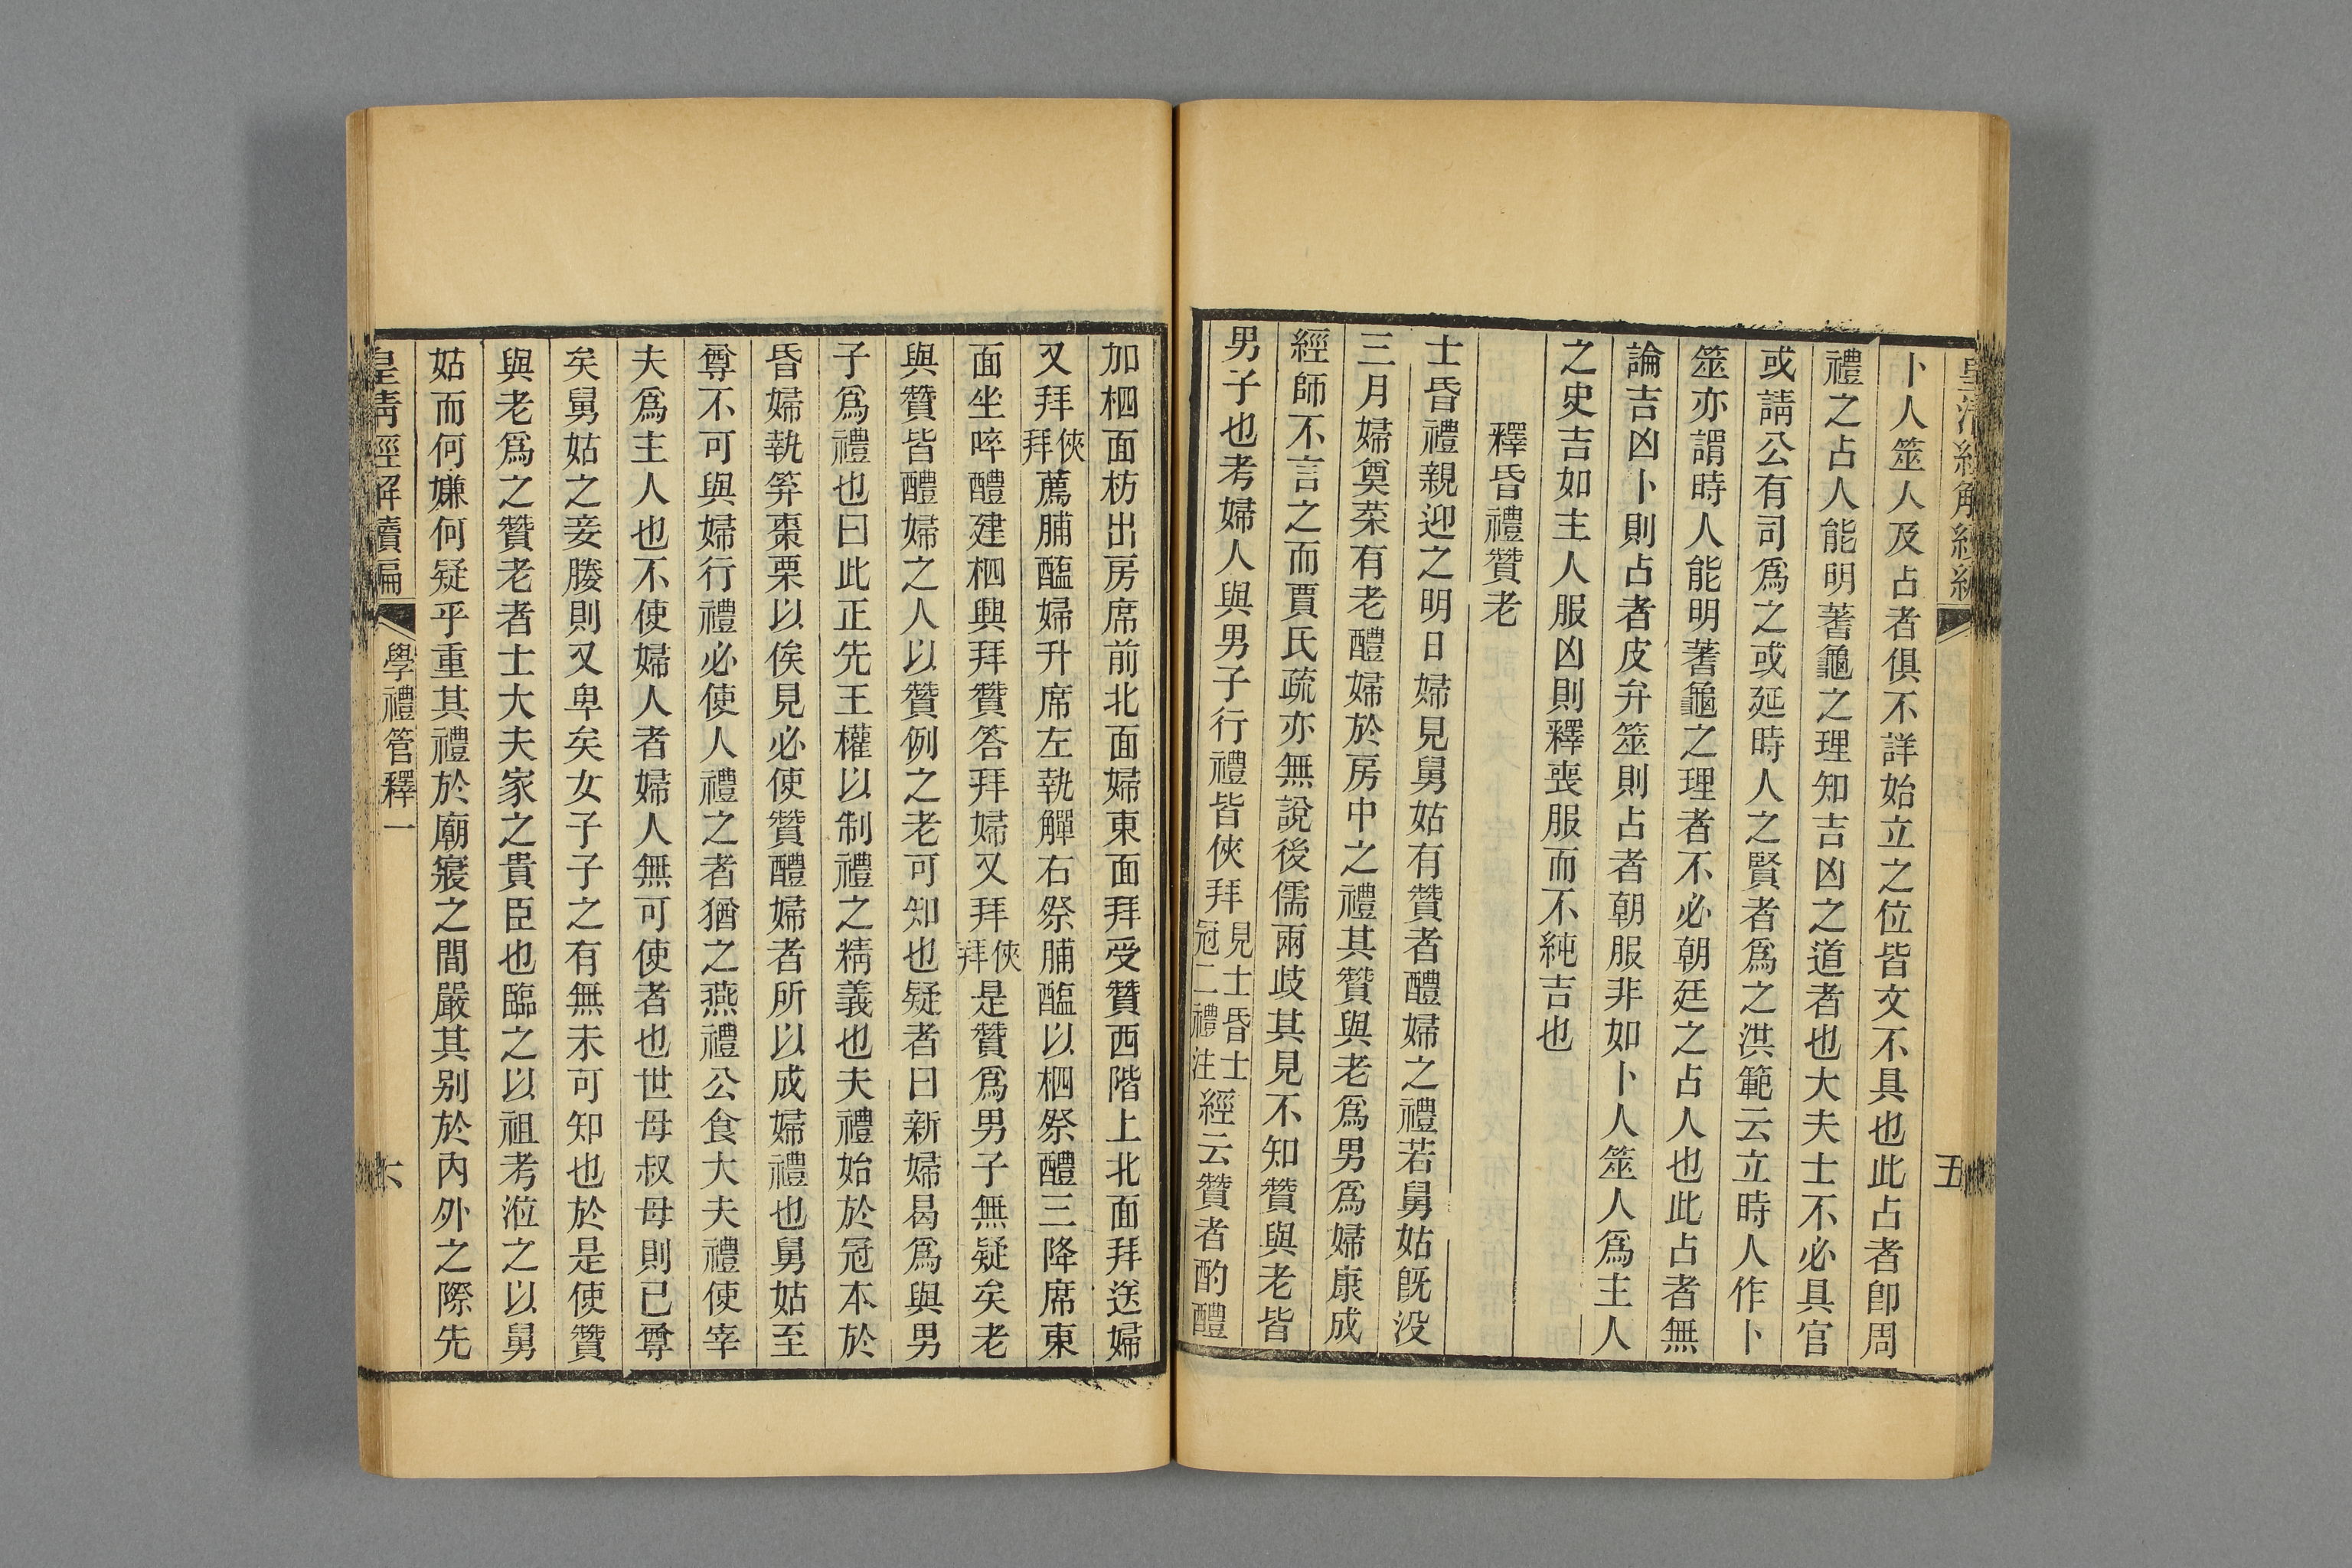 皇清經解續編
五
卜人筮人及占者俱不詳始立之位皆文不具也此占者卽周
禮之占人能明蓍龜之理知吉凶之道者也大夫士不必具官
或請公有司爲之或延時人之賢者爲之洪範云立時人作卜
筮亦謂時人能明蓍龜之理者不必朝廷之占人也此占者無
論吉凶卜則占者皮弁筮則占者朝服非如卜人筮人爲主人
之史吉如主人服凶則釋喪服而不純吉也
釋昏禮贊老
士昏禮親迎之明日婦見舅姑有贊者醴婦之禮若舅姑旣没
三月婦奠菜有老醴婦於房中之禮其贊與老爲男爲婦康成
經師不言之而賈氏疏亦無說後儒兩歧其見不知贊與老皆
男子也考婦人與男子行禮皆俠拜見士昏士冠二禮注經云贊者酌醴
加柶面枋出房席前北面婦東面拜受贊西階上北面拜送婦
又拜俠拜薦脯醢婦升席左執觶右祭脯醢以柶祭醴三降席東
面坐啐醴建柶興拜贊答拜婦又拜俠拜是贊爲男子無疑矣老
與贊皆醴婦之人以贊例之老可知也疑者曰新婦曷爲與男
子爲禮也曰此正先王權以制禮之精義也夫禮始於冠本於
昏婦執笲棗栗以俟見必使贊醴婦者所以成婦禮也舅姑至
尊不可與婦行禮必使人禮之者猶之燕禮公食大夫禮使宰
夫爲主人也不使婦人者婦人無可使者也世母叔母則已尊
矣舅姑之妾媵則又卑矣女子子之有無未可知也於是使贊
與老爲之贊老者士大夫家之貴臣也臨之以祖考涖之以舅
姑而何嫌何疑乎重其禮於廟寢之間嚴其别於内外之際先
皇清經解續編
學禮管釋一
六